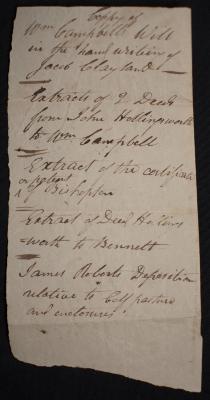 Copy of
Wm Campbells Will
in the hand writing of
Jacob Clayland
Extracts of 2 Deeds
from John Hollingsworth
to Wm Campbell
Extract of the certificate
or patent
of Bishopton
Extract of Deed Hollings
=worth to Bennett
James Roberts Deposition
relative to Colt pasture
and enclosures